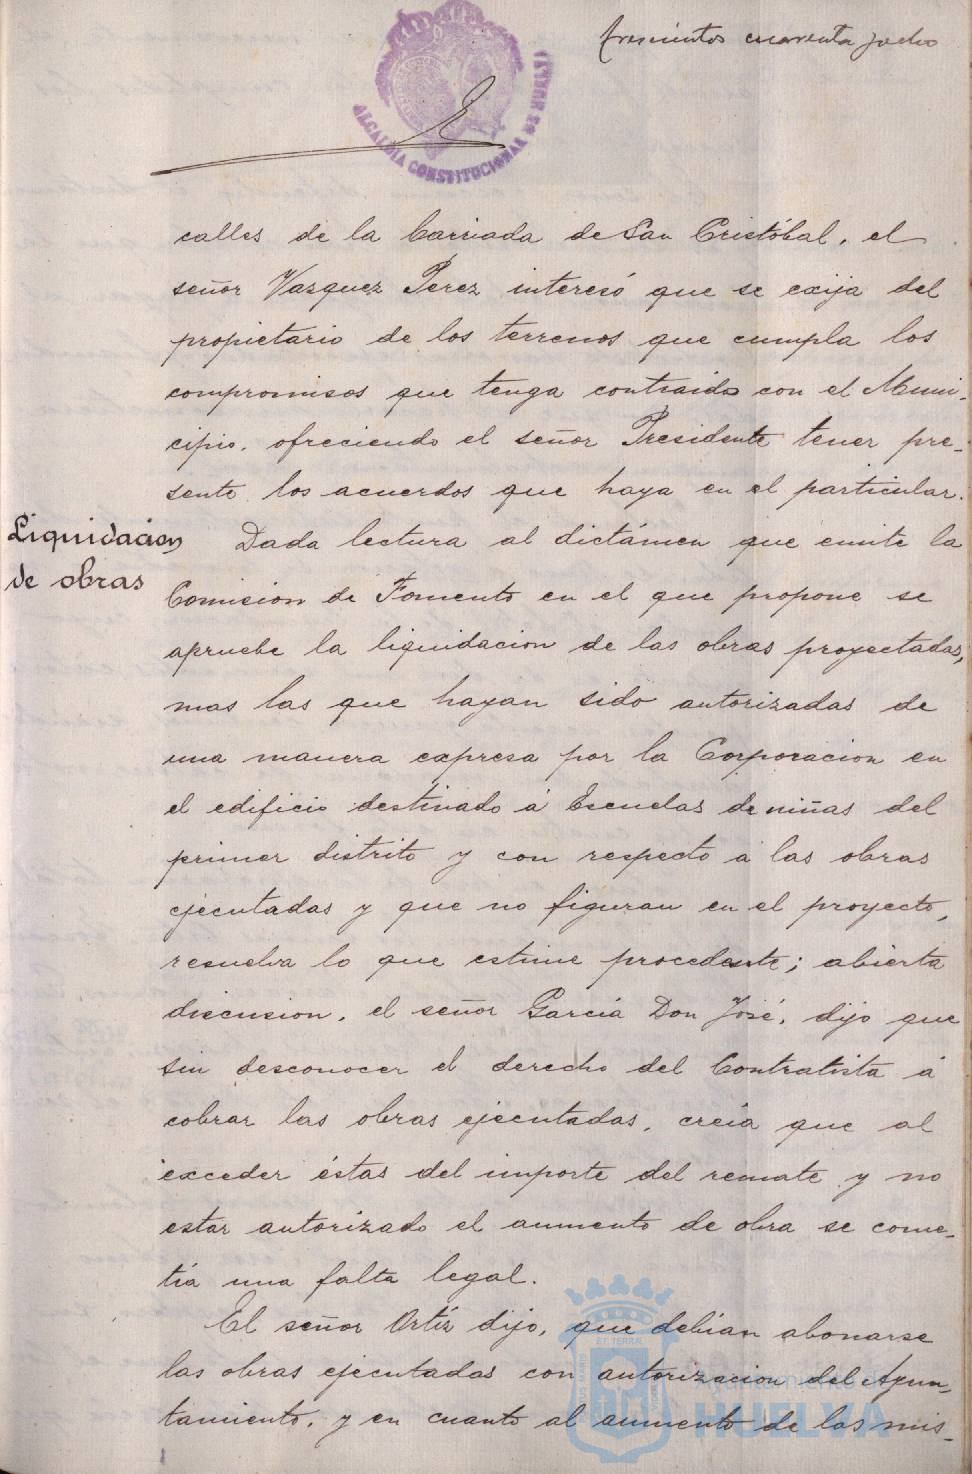 trescientos cuarenta y ocho
ALCALDIA CONSTITUCIONAL DE HUELVA
calles de la barriada de San Cristóbal, el
señor Vazquez Perez interesó que se exija del
propietario de los terrenos que cumpla los
compromisos que tenga contraidos con el Muni-
cipio, ofreciendo el señor Presidente tener pre-
sente los acuerdos que haya en el particular.
Liquidacion
de obras
Dada lectura al dictámen que emite la
Comision de Fomento en el que propone se
apruebe la liquidacion de las obras proyectadas,
mas las que hayan sido autorizadas de
una manera expresa por la Corporacion en
el edificio destinado á Escuelas de niñas del
primer distrito y con respecto á las obras
ejecutadas y que no figuran en el proyecto,
resuelva lo que estime procedente; abierta
discusion, el señor García Don José, dijo que
sin desconocer el derecho del Contratista á
cobrar las obras ejecutadas, creía que al
exceder éstas del importe del remate y no
estar autorizado el aumento de obra se come-
tía una falta legal.
El señor Ortíz dijo, que debían abonarse
las obras ejecutadas con autorizacion del Ayun-
tamiento, y en cuanto al aumento de las mis-
Ayuntamiento de
HUELVA